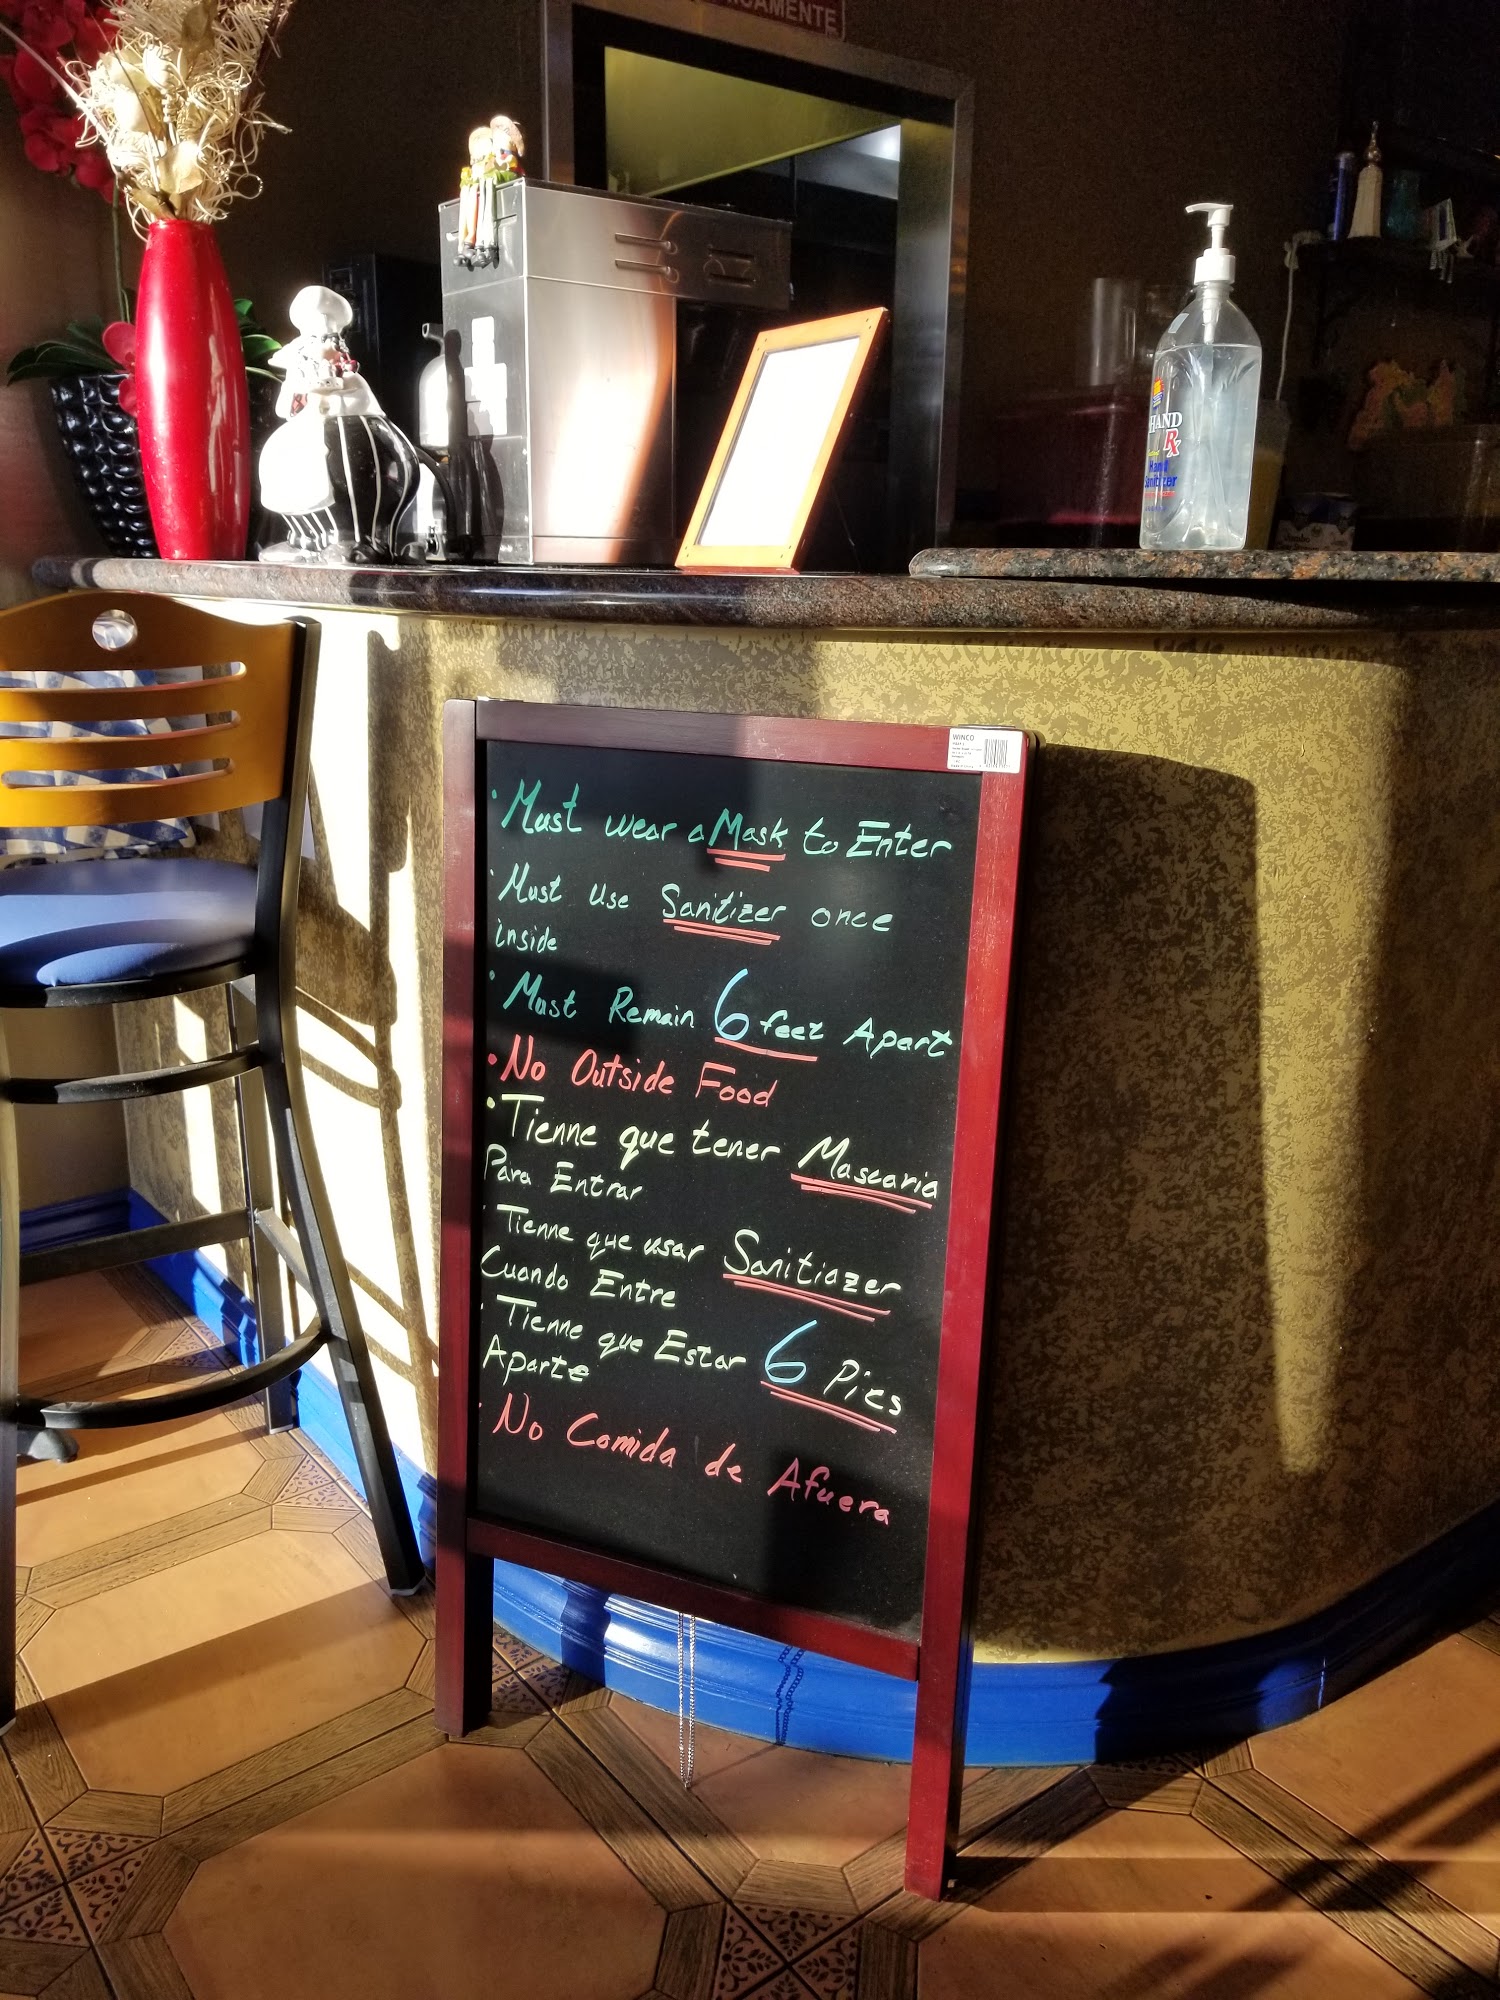 CAMENTE
HAND
Rx
Hand
Sanitizer
WINCO
• Must wear a Mask to Enter
• Must Use Sanitizer once
inside
• Must Remain 6 feet Apart
• No Outside Food
• Tienne que tener Mascaria
Para Entrar
• Tienne que usar Sanitiazer
Cuando Entre
• Tienne que Estar 6 Pies
Aparte
• No Comida de Afuera